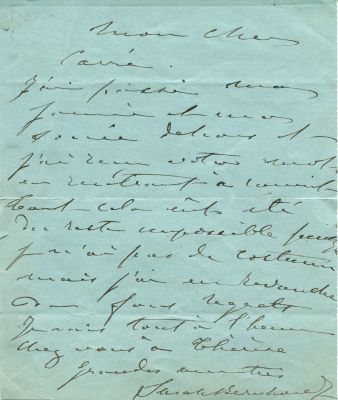 Mon cher
Carré.
J'ai passé ma
journée et ma
soirée dehors et
j'ai reçu votre mot
en rentrant à minuit
tout cela eût été
du reste impossible puisque
je n'ai pas de costume
mais j'ai en revanche
de fous regrets
Je vais tout à l'heure
chez vous à Thérèse
grandes amitiés
Sarah Bernhardt